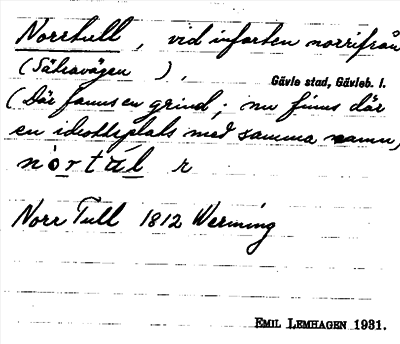 Norrtull, vid infarten norrifrån
(Sätravägen ),
Gävle stad, Gävleb. l.
(Där fanns en grind; nu finns där
en idrottsplats med samma namn)
nortul r
Norr Tull 1812 Werming
EMIL LEMHAGEN 1931.